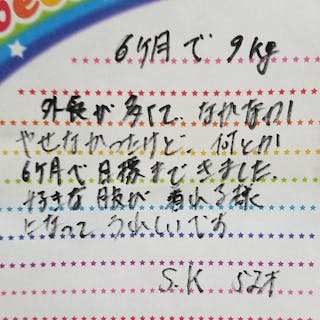 6ヶ月で 9kg
外食が多くて、なかなか
やせなかったけど、何とか
6ヶ月で目標まできました。
好きな服が着れる様
になって うれしいです
S.K 52才